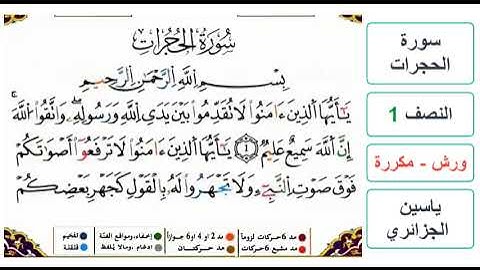 سورة
الحجرات
النصف 1
ورش - مكررة
ياسين
الجزائري
سُورَةُ الْحُجُرَاتِ
بِسْمِ اللَّهِ الرَّحْمَٰنِ الرَّحِيمِ
يَٰٓأَيُّهَا اَ۬لذِينَ ءَامَنُوا لَا تُقَدِّمُوا بَيْنَ يَدَيِ اِ۬للَّهِ وَرَسُولِهِۦ وَاتَّقُوا اُ۬للَّهَ
إِنَّ اَ۬للَّهَ سَمِيعٌ عَلِيمٌ ١ يَٰٓأَيُّهَا اَ۬لذِينَ ءَامَنُوا لَا تَرْفَعُوٓا أَصْوَٰتَكُمْ
فَوْقَ صَوْتِ اِ۬لنَّبِيٓءِ وَلَا تَجْهَرُوا لَهُۥ بِالْقَوْلِ كَجَهْرِ بَعْضِكُمْ
مد 6 حركات لزوما مد 2 أو 4 أو 6 جوازا إخفاء، ومواقع الغنة تفخيم
مد مشبع 6 حركات مد حركتان ادغام، ومالا يلفظ قلقلة